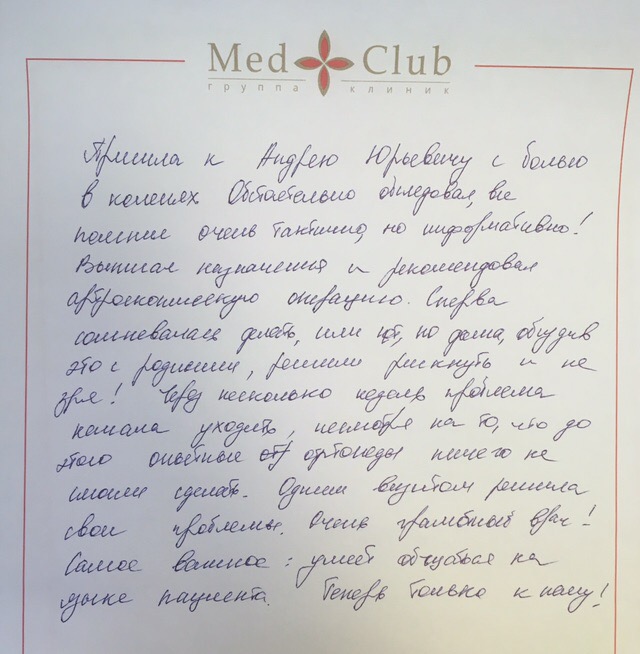 Med Club
группа клиник
Пришла к Андрею Юрьевичу с болью
в коленях. Обстоятельно обследовал, все
пояснил очень тактично, но информативно!
Выписал назначения и рекомендовал
артроскопическую операцию. Сперва
сомневалась делать, или нет, но дома, обсудив
это с родными, решили рискнуть и не
зря! Через несколько недель проблема
начала уходить, несмотря на то, что до
этого опытные ортопеды ничего не
смогли сделать. Одним визитом решила
свои проблемы. Очень грамотный врач!
Самое важное: умеет общаться на
языке пациента. Теперь только к нему!